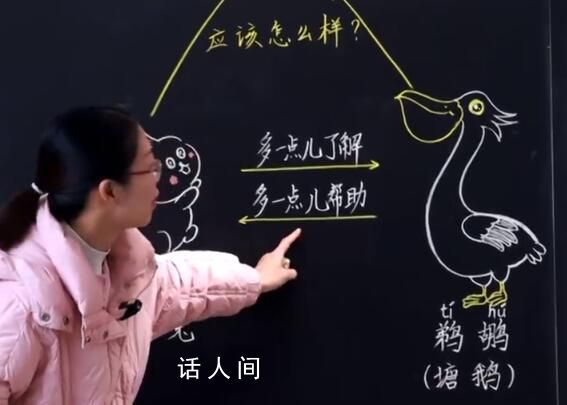 应该怎么样？
多一点儿了解
多一点儿帮助
tí hú
鹈鹕
(塘鹅)
话人间